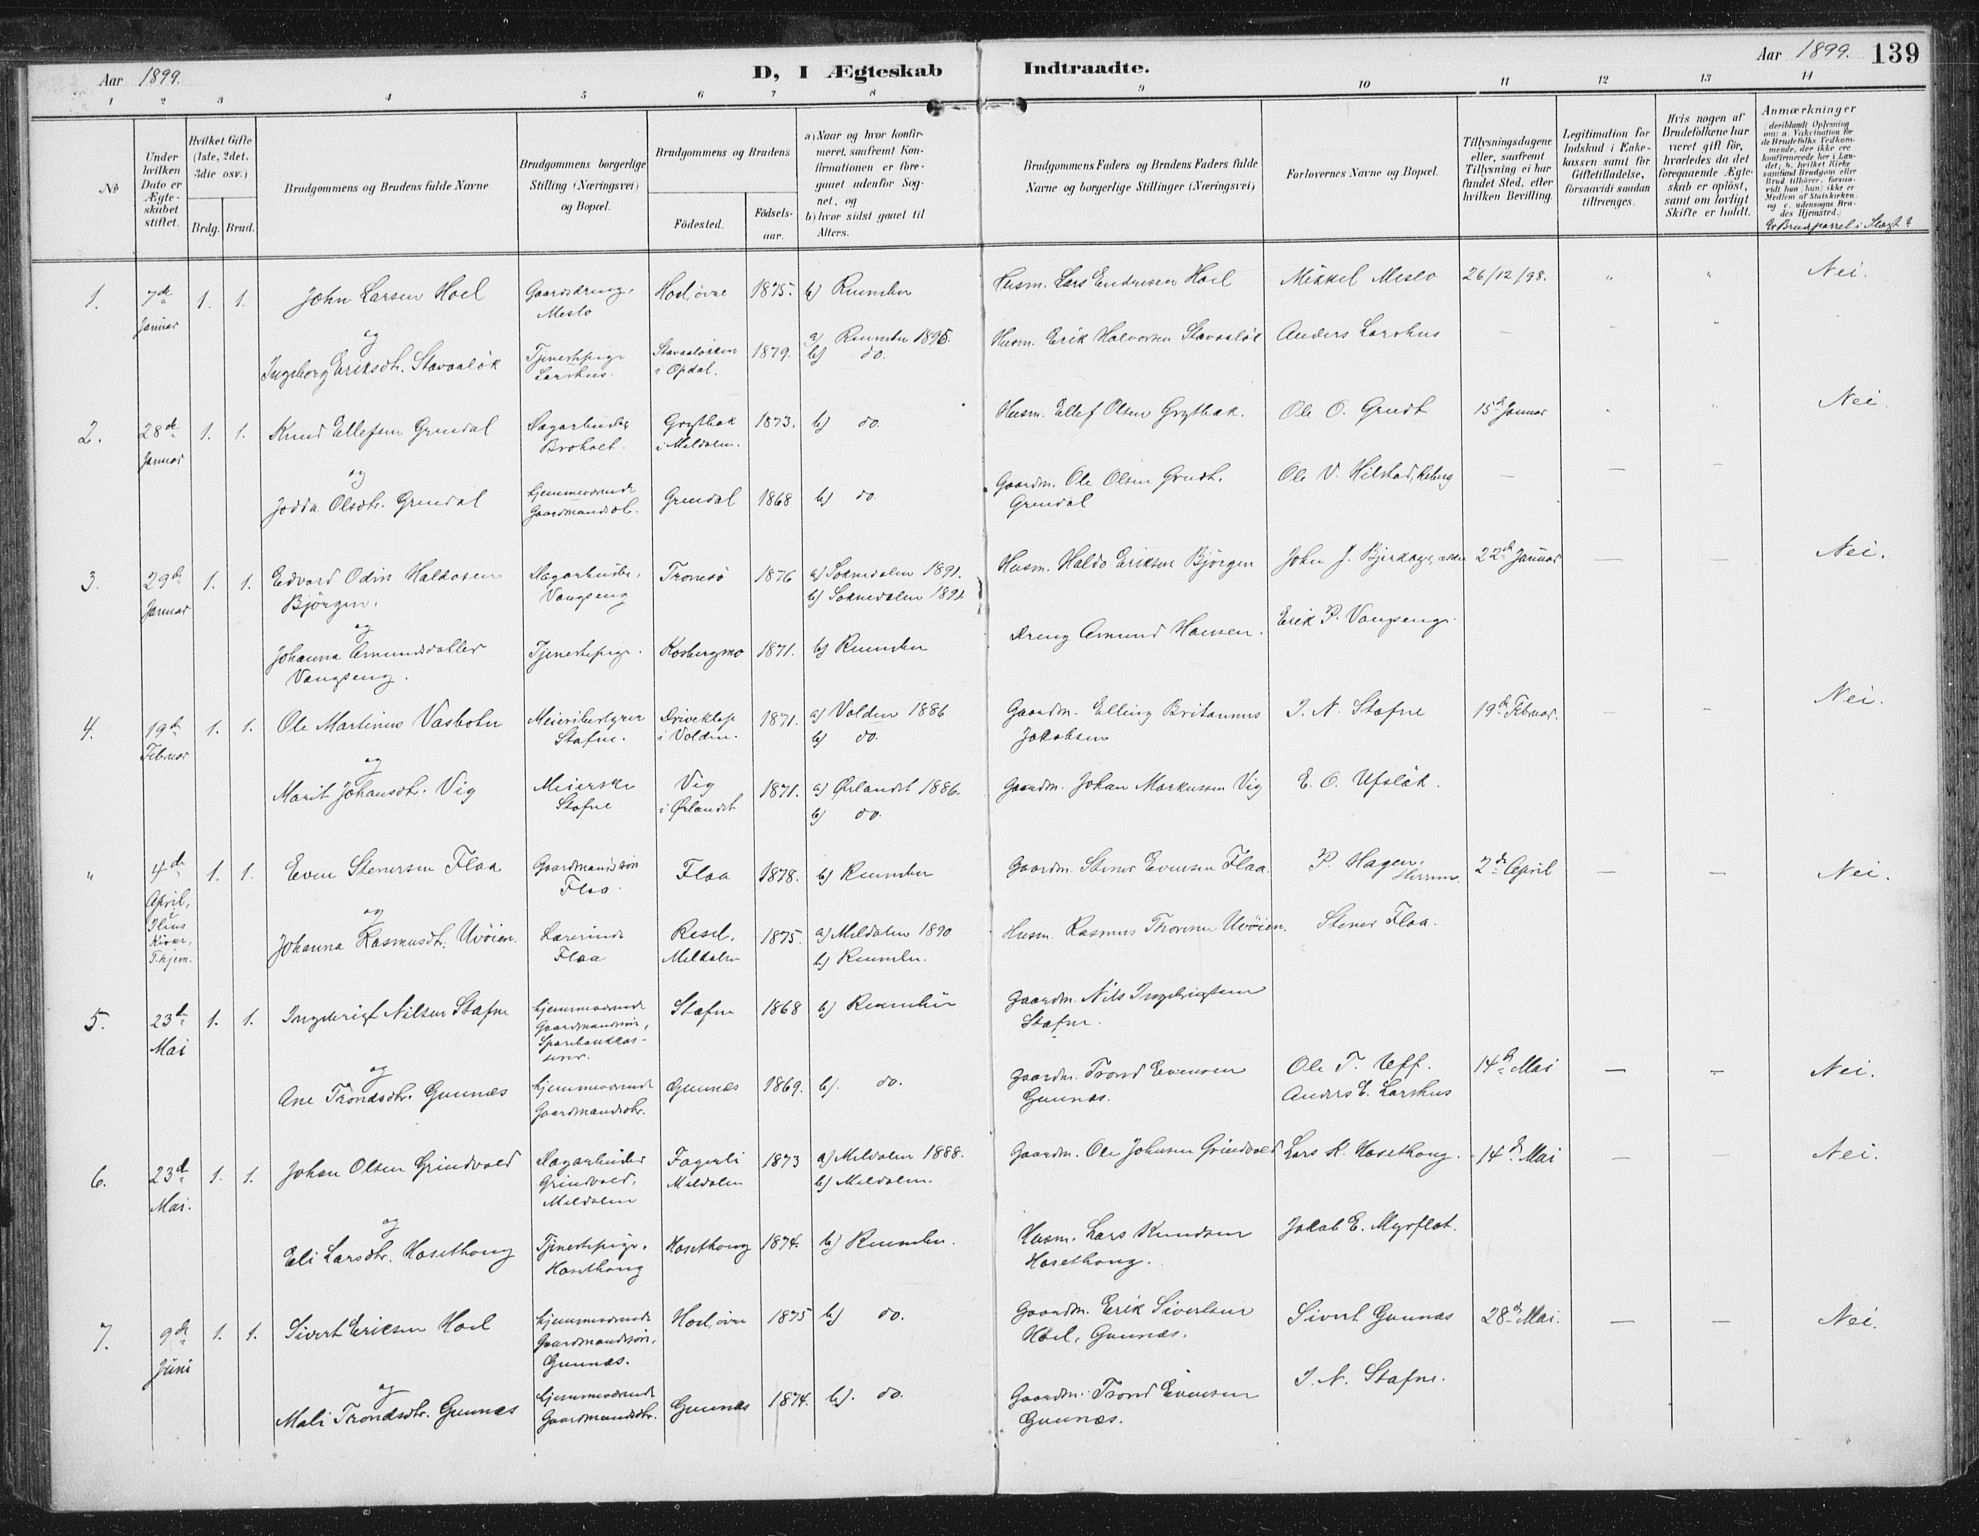 Aar 1899.
D, I Ægteskab Indtraadte.
Aar 1899. 139
1 2 3 4 5 6 7 8 9 10 11 12 13 14
No
Under hvilken Dato er Ægteskabet stiftet.
Hvilket Gifte (1ste, 2det, 3die osv.)
Brdg. Brud.
Brudgommens og Brudens fulde Navne
Brudgommens borgerlige Stilling (Næringsvei) og Bopæl.
Brudgommens og Brudens
Fødested. Fødselsaar.
a) Naar og hvor konfirmeret, saafremt Konfirmationen er foregaaet udenfor Sognet, og
b) hvor sidst gaaet til Alters.
Brudgommens Faders og Brudens Faders fulde Navne og borgerlige Stillinger (Næringsvei)
Forlovernes Navne og Bopæl.
Tillysningsdagene eller, saafremt Tillysning ei har fundet Sted, efter hvilken Bevilling.
Legitimation for Indskud i Enkekassen samt for Giftetilladelse, forsaavidt saadan tiltrænges.
Hvis nogen af Brudefolkene har været gift før, hvorledes da det foregaaende Ægteskab er opløst, samt om lovligt Skifte er holdt.
Anmærkninger
Er Brudparret i Slægt?
1. 7de Januar 1. 1. John Larsen Hoel Gaardsdreng, Meslo Hoel, øvre 1875. b) Rennebu Husm. Lars Endresen Hoel Mikkel Meslo 26/12/98. " " Nei.
og
Ingeborg Eriksdtr. Stavaaløk Tjenestepige Larshus. Stavaaløkken i Opdal. 1879. a) Rennebu 1895. b) do. Husm. Erik Halvorsen Stavaaløk Anders Larshus
2. 28de Januar 1. 1. Knud Ellefsen Grendal Dagarbeider Broholt. Grytbak i Meldalen. 1873. b) do. Husm. Ellef Olsen Grytbak. Ole O. Grudt 15de Januar Nei.
og
Jodda Olsdtr. Grendal hjemmeværende Gaardmandsdtr. Grendal 1868 b) do. Gaardm. Ole Olsen Grudt, Grendal Ole V. Hilstad,
3. 29de Januar 1. 1. Edvard Odin Haldosen Bjørgen. Dagarbeider, Vangseng Tromsø 1876 a) Soknedalen 1891. b) Soknedalen 1891 Husm. Haldo Eriksen Bjørgen John J. Bjerkager, 22de Januar — — Nei.
og
Johanna Amundsdatter Vangseng. Tjenestepige. Kosbergmo 1871. b) Rennebu Dreng Amund Hansen. Erik P. Vangseng.
4. 19de Februar 1. 1. Ole Martinus Vasbotn Meieribestyrer Stafne. Driveklep i Volden. 1871. a) Volden 1886 b) do. Gaardm. Elling Britannus Jakobsen I. N. Stafne 19de Februar. — — Nei.
og
Marit Johansdtr. Vig Meierske Stafne Vig i Ørlandet 1871. a) Ørlandet 1886. b) do. Gaardm. Johan Markussen Vig E. O. Ufsløk.
" 4de April, Ilens Kirke, T.hjem. 1. 1. Even Stenersen Flaa Gaardmandssøn Flaa. Flaa 1878. b) Rennebu Gaardm. Stener Evensen Flaa. P. Hagen, 2de April — — Nei.
og
Johanna Rasmusdtr. Uvøien. Lærerinde Flaa Resel. Meldalen 1875. a) Meldalen 1890 b) Rennebu. Husm. Rasmus Thoresen Uvøien. Stener Flaa.
5. 23de Mai 1. 1. Ingebrigt Nilsen Stafne hjemmeværende Gaardmandssøn, Sparebankkasserer. Stafne 1868 b) Rennebu Gaardm. Nils Ingebrigtsen Stafne.
og
Ane Trondsdtr. Gunnes hjemmeværende Gaardmandsdtr. Gunnes 1869. b). do. Gaardm. Trond Evensen Gunnes. Ole T. Uff. Anders E. Larshus 14de Mai — — Nei.
6. 23de Mai. 1. 1. Johan Olsen Grindvold Dagarbeider Grindvold, Meldalen Fagerli Meldalen 1873 a) Meldalen 1888. b) Meldalen. Gaardm. Ole Johnsen Grindvold Lars K. Hosethaug. 14de Mai — — Nei.
og
Eli Larsdtr. Hosethaug Tjenestepige. Hosethaug Hosethaug 1874. b) Rennebu. Husm. Lars Knudsen Hosethaug. Jakob E. Myrflot.
7. 9de Juni 1. 1. Sivert Eriksen Hoel hjemmeværende Gaardmandssøn, Gunnes. Hoel, øvre 1875 b) do. Gaardm. Erik Sivertsen Hoel, Gunnes. Sivert Gunnes 28de Mai. — — Nei.
og
Mali Trondsdtr. Gunnes hjemmeværende Gaardmandsdtr. Gunnes 1874. b). do. Gaardm. Trond Evensen Gunnes. I. N. Stafne.